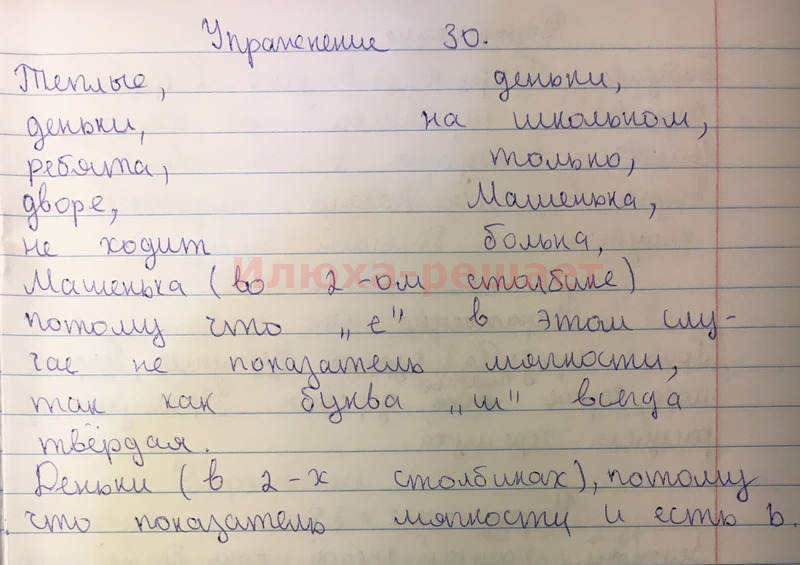 Упражнение 30.
Теплые, деньки,
деньки, на школьном,
ребята, только,
дворе, Машенька,
не ходит больна,
Илюха-решает
Машенька (во 2-ом столбике)
потому что „е" в этом слу-
чае не показатель мягкости,
так как буква „ш" всегда
твёрдая.
Деньки (в 2-х столбиках), потому
что показатель мягкости и есть ь.